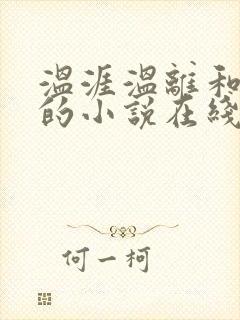 温涯温離和
的小说在綫
何一柯